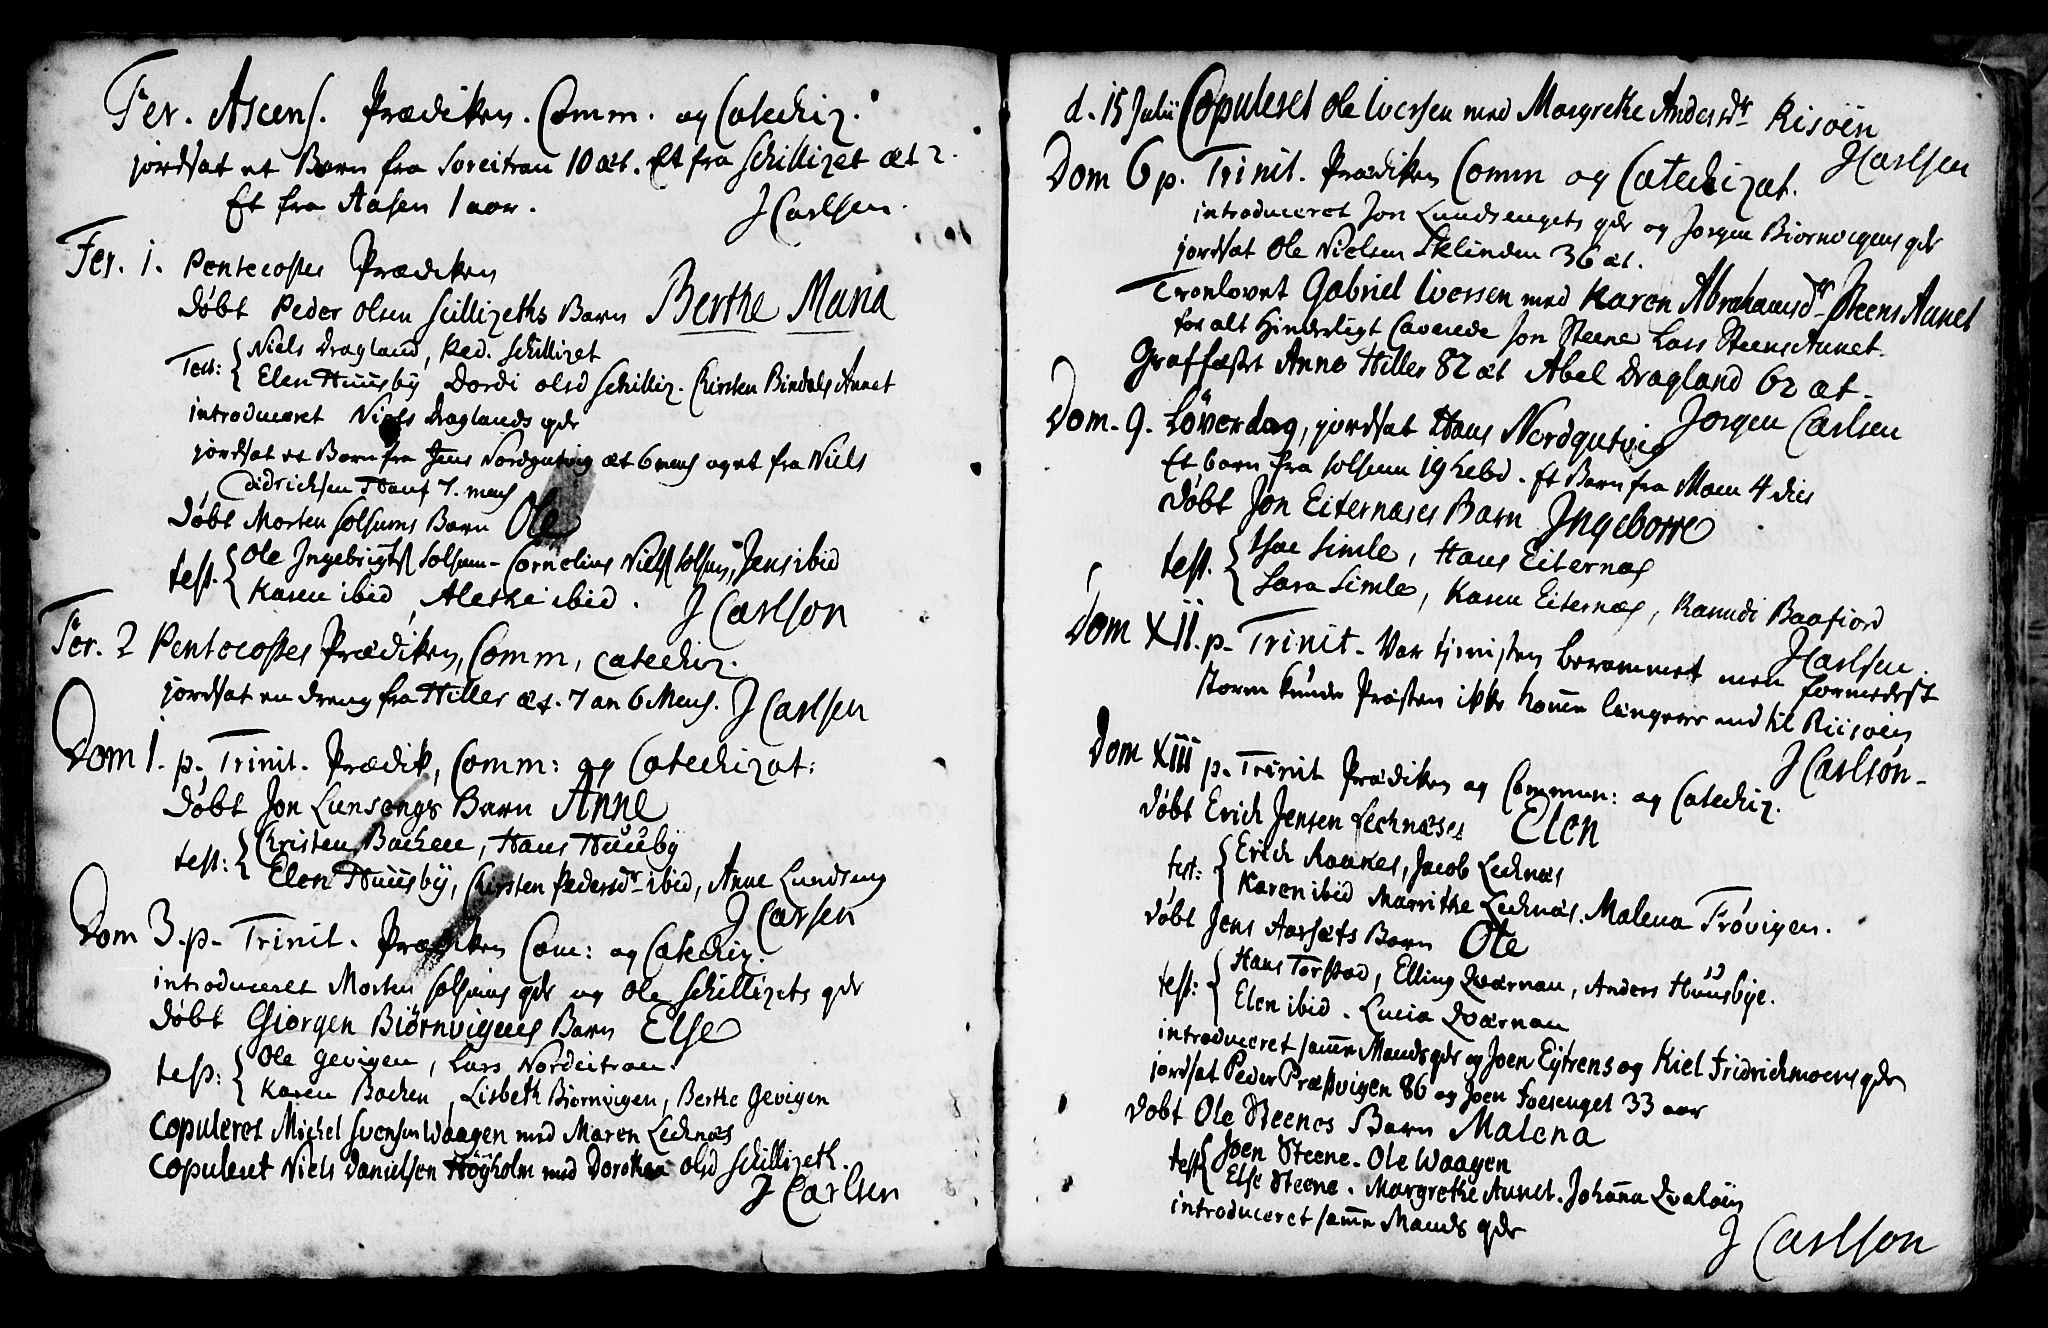 Fer. Ascens. Prædiken. Comm. og Catechiz.
jordsat et Barn fra Soreitran 10 æt. Et fra Schillizet æt 2.
Et fra Aasen 1 aar.
J Carlsen.
Fer. 1. Pentecostes Prædiken
Døbt Peder Olsen Scillizeths Barn Berthe Maria
Test: Niels Dragland, Ped. Schillizet
Elen Huusby Dordi olsd Schilliz. Chirsten Bindals Aunet
introduceret Niels Draglands qdr
jordsat et Barn fra Jens Nordgutvig æt 6 mens og et fra Niels
Didrichsen 7. mens
Døbt Morten Solsems Barn Ole
test. Ole Ingebrigts Solsem - Cornelius Niels Solsem, Jens ibid
Karen ibid, Alethe ibid.
J Carlson
Fer. 2 Pentecostes Prædiken, Comm, catechiz.
jordsat en dreng fra Hiller æt. 7 an 6 Mens.
J Carlsen
Dom 1. p. Trinit. Prædik, Comm: og Catechizat:
Døbt Jon Lunsengs Barn Anne
test: Christen Bachen, Hans Huuby
Elen Huusbÿ, Chirsten Pedersdr ibid, Anne Lundseng
J Carsen
Dom 3. p. Trinit. Prædiken Com: og Catechiz.
introduceret Morten Solsems qdr og Ole Schillizets qdr
Døbt Giörgen Biørnvigens Barn Else
test: Ole Gevigen, Lars Nordeitran.
Karen Bachen, Lisbeth Biørnvigen, Berthe Gevigen
Copuleret Michel Svensen Waagen med Maren Lechnæs
Copuleret Niels Danielsen Höÿholm med Dorothea olsd Schillizeth.
J Carlsen
d. 15 Julii Copuleret Ole Iversen med Margrethe Andersdr Risöen
J Carlsen
Dom 6 p. Trinit. Prædiken Comm og Catechizat.
introduceret Jon Lundsengets qdr og Jørgen Biørnvigens qdr
jordsat Ole Nielsen Sklinden 36 æt.
Troelovet Gabriel Iversen med Karen Abrahamsdr Steens Aunet
for alt Hinderligt Caverede Jon Steene Lars Steens Aunet.
Graffæstet Anne Hiller 82 æt Abel Dragland 62 æt.
Jørgen Carlsen
Dom. 9. Löverdag, jordsat Hans Nordgutvig
Et barn fra Solsem 19 hebd. Et Barn fra Moen 4 dies
Døbt Jon Eiternæses Barn Ingeborre
test. Isac Simle, Hans Eiternæs
Sara Simle, Karen Eiternæs, Randi Baafiord
J Carlsen.
Dom XII. p. Trinit. Var tjenisten berammet men formedelst
storm kunde Præsten ikke komme længere end til Riisøen
J Carlson.
Dom XIII p. Trinit Prædiken og Commun: og Catechiz.
Døbt Erich Jensen Lechnæses Elen
test: Erich Aaakes, Jacob Lechnæs
Karen ibid Marrithe Lechnæs. Malena Frövigen.
Døbt Jens Aarsæts Barn Ole
test: Hans Torstad, Elling Qværnøen, Anders Huusbye.
Elen ibid. Lucia Qværnøen
introduceret samme Mands qdr og Joen Eÿtrens og Kiel Fridrichmoens qdr
jordsat Peder Præstvigen 86 og Joen Foesenget 33 aar
Døbt Ole Steenes Barn Malena
test Joen Steene. Ole Waagen
Else Steene. Margrethe Aunet. Johanna Qvaløen
introduceret samme Mands qdr
J Carlson